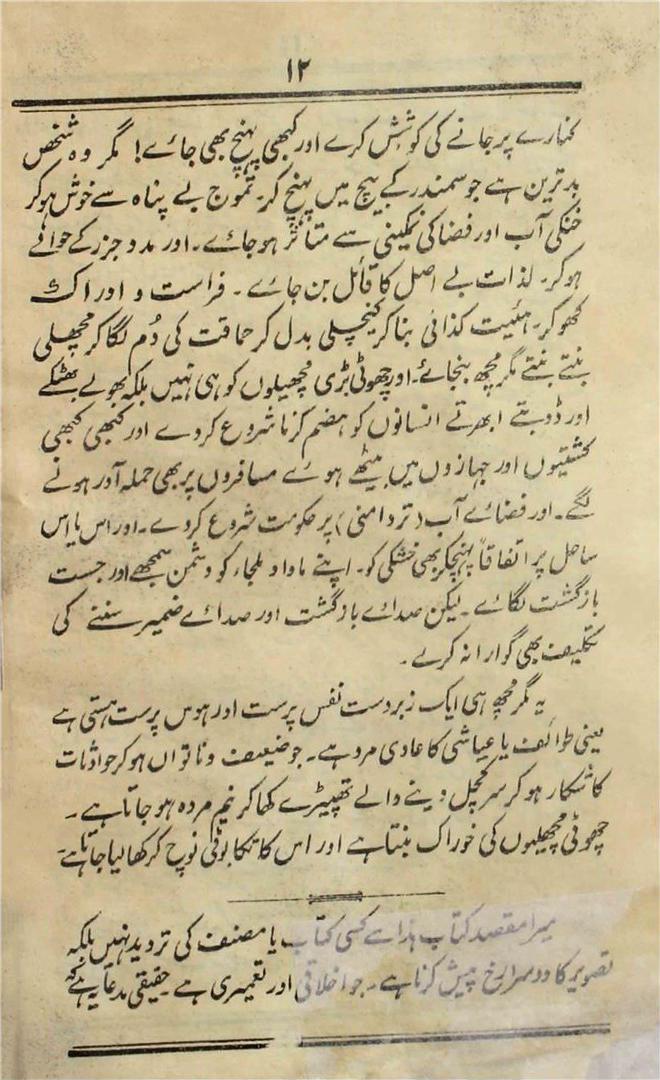 ۱۲
کنارے پر جانے کی کوشش کرے اور کبھی پہنچ بھی جائے! مگر وہ شخص
بدترین ہے جو سمندر کے بیچ میں پہنچ کر۔ تموج بے پناہ سے خوش ہو کر
خنکی آب اور فضا کی نمکینی سے متاثر ہو جائے۔ اور مد و جزر کے حوالے
ہو کر۔ لذات بے اصل کا قائل بن جائے۔ فراست و ادراک
کھو کر۔ ہئیت کذائی بنا کر کینچلی بدل کر حماقت کی دُم لگا کر مچھلی
بنتے بنتے مگرمچھ بنجائے۔ اور چھوٹی بڑی مچھیلوں کو ہی نہیں بلکہ بھولے بھٹکے
اور ڈوبتے ابھرتے انسانوں کو ہضم کرنا شروع کر دے اور کبھی کبھی
کشتیوں اور جہازوں میں بیٹھے ہوئے مسافروں پر بھی حملہ آور ہونے
لگے۔ اور فضائے آب (تر دامنی) پر حکومت شروع کر دے۔ اور اس یا اس
ساحل پر اتفاقاً پہنچکر بھی خشکی کو۔ اپنے ماوا و ملجاء کو دشمن سمجھے اور جست
بازگشت لگائے۔ لیکن صدائے بازگشت اور صدائے ضمیر سننے کی
تکلیف بھی گوارا نہ کرے۔
یہ مگرمچھ ہی ایک زبردست نفس پرست اور ہوس پرست ہستی ہے
یعنی طوائف یا عیاشی کا عادی مرد ہے۔ جو ضعیف و ناتواں ہو کر حوادثات
کا شکار ہو کر سر کچل دینے والے تھپیڑے کھا کر نیم مردہ ہو جاتا ہے۔
چھوٹی مچھلیوں کی خوراک بنتا ہے اور اس کا تکا بوٹی نوچ کر کھا لیا جاتا ہے۔
میرا مقصد کتاب ہذا سے کسی کتاب یا مصنف کی تردید نہیں بلکہ
تصویر کا دوسرا رخ پیش کرنا ہے۔ جو اخلاقی اور تعمیری ہے۔ حقیقی مدعا یہ ہے کہ